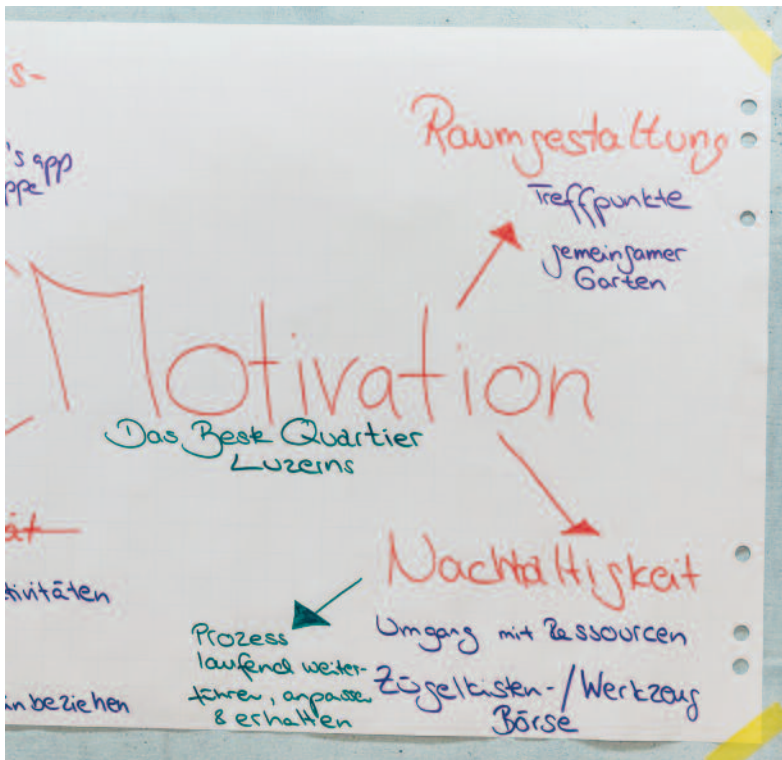 s-
's app
ppe
Raumgestaltung
Treffpunkte
gemeinsamer
Garten
Motivation
Das Beste Quartier
Luzerns
ät
tivitäten
inbeziehen
Nachhaltigkeit
Umgang mit Ressourcen
Zügelkisten-/Werkzeug
Börse
Prozess
laufend weiter-
führen, anpassen
& erhalten